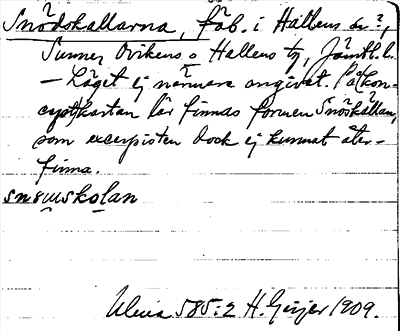 Snödskallarna, fäb. i Hallens sn?,
Sunne Ovikens o Hallens tg, Jämtl. l.
— Läget ej närmare angivet. På kon-
ceptkartan lär finnas formen Snöskallan,
som excerpisten dock ej kunnat åter-
finna.
skolan
585:2 H. Geijer 1909.